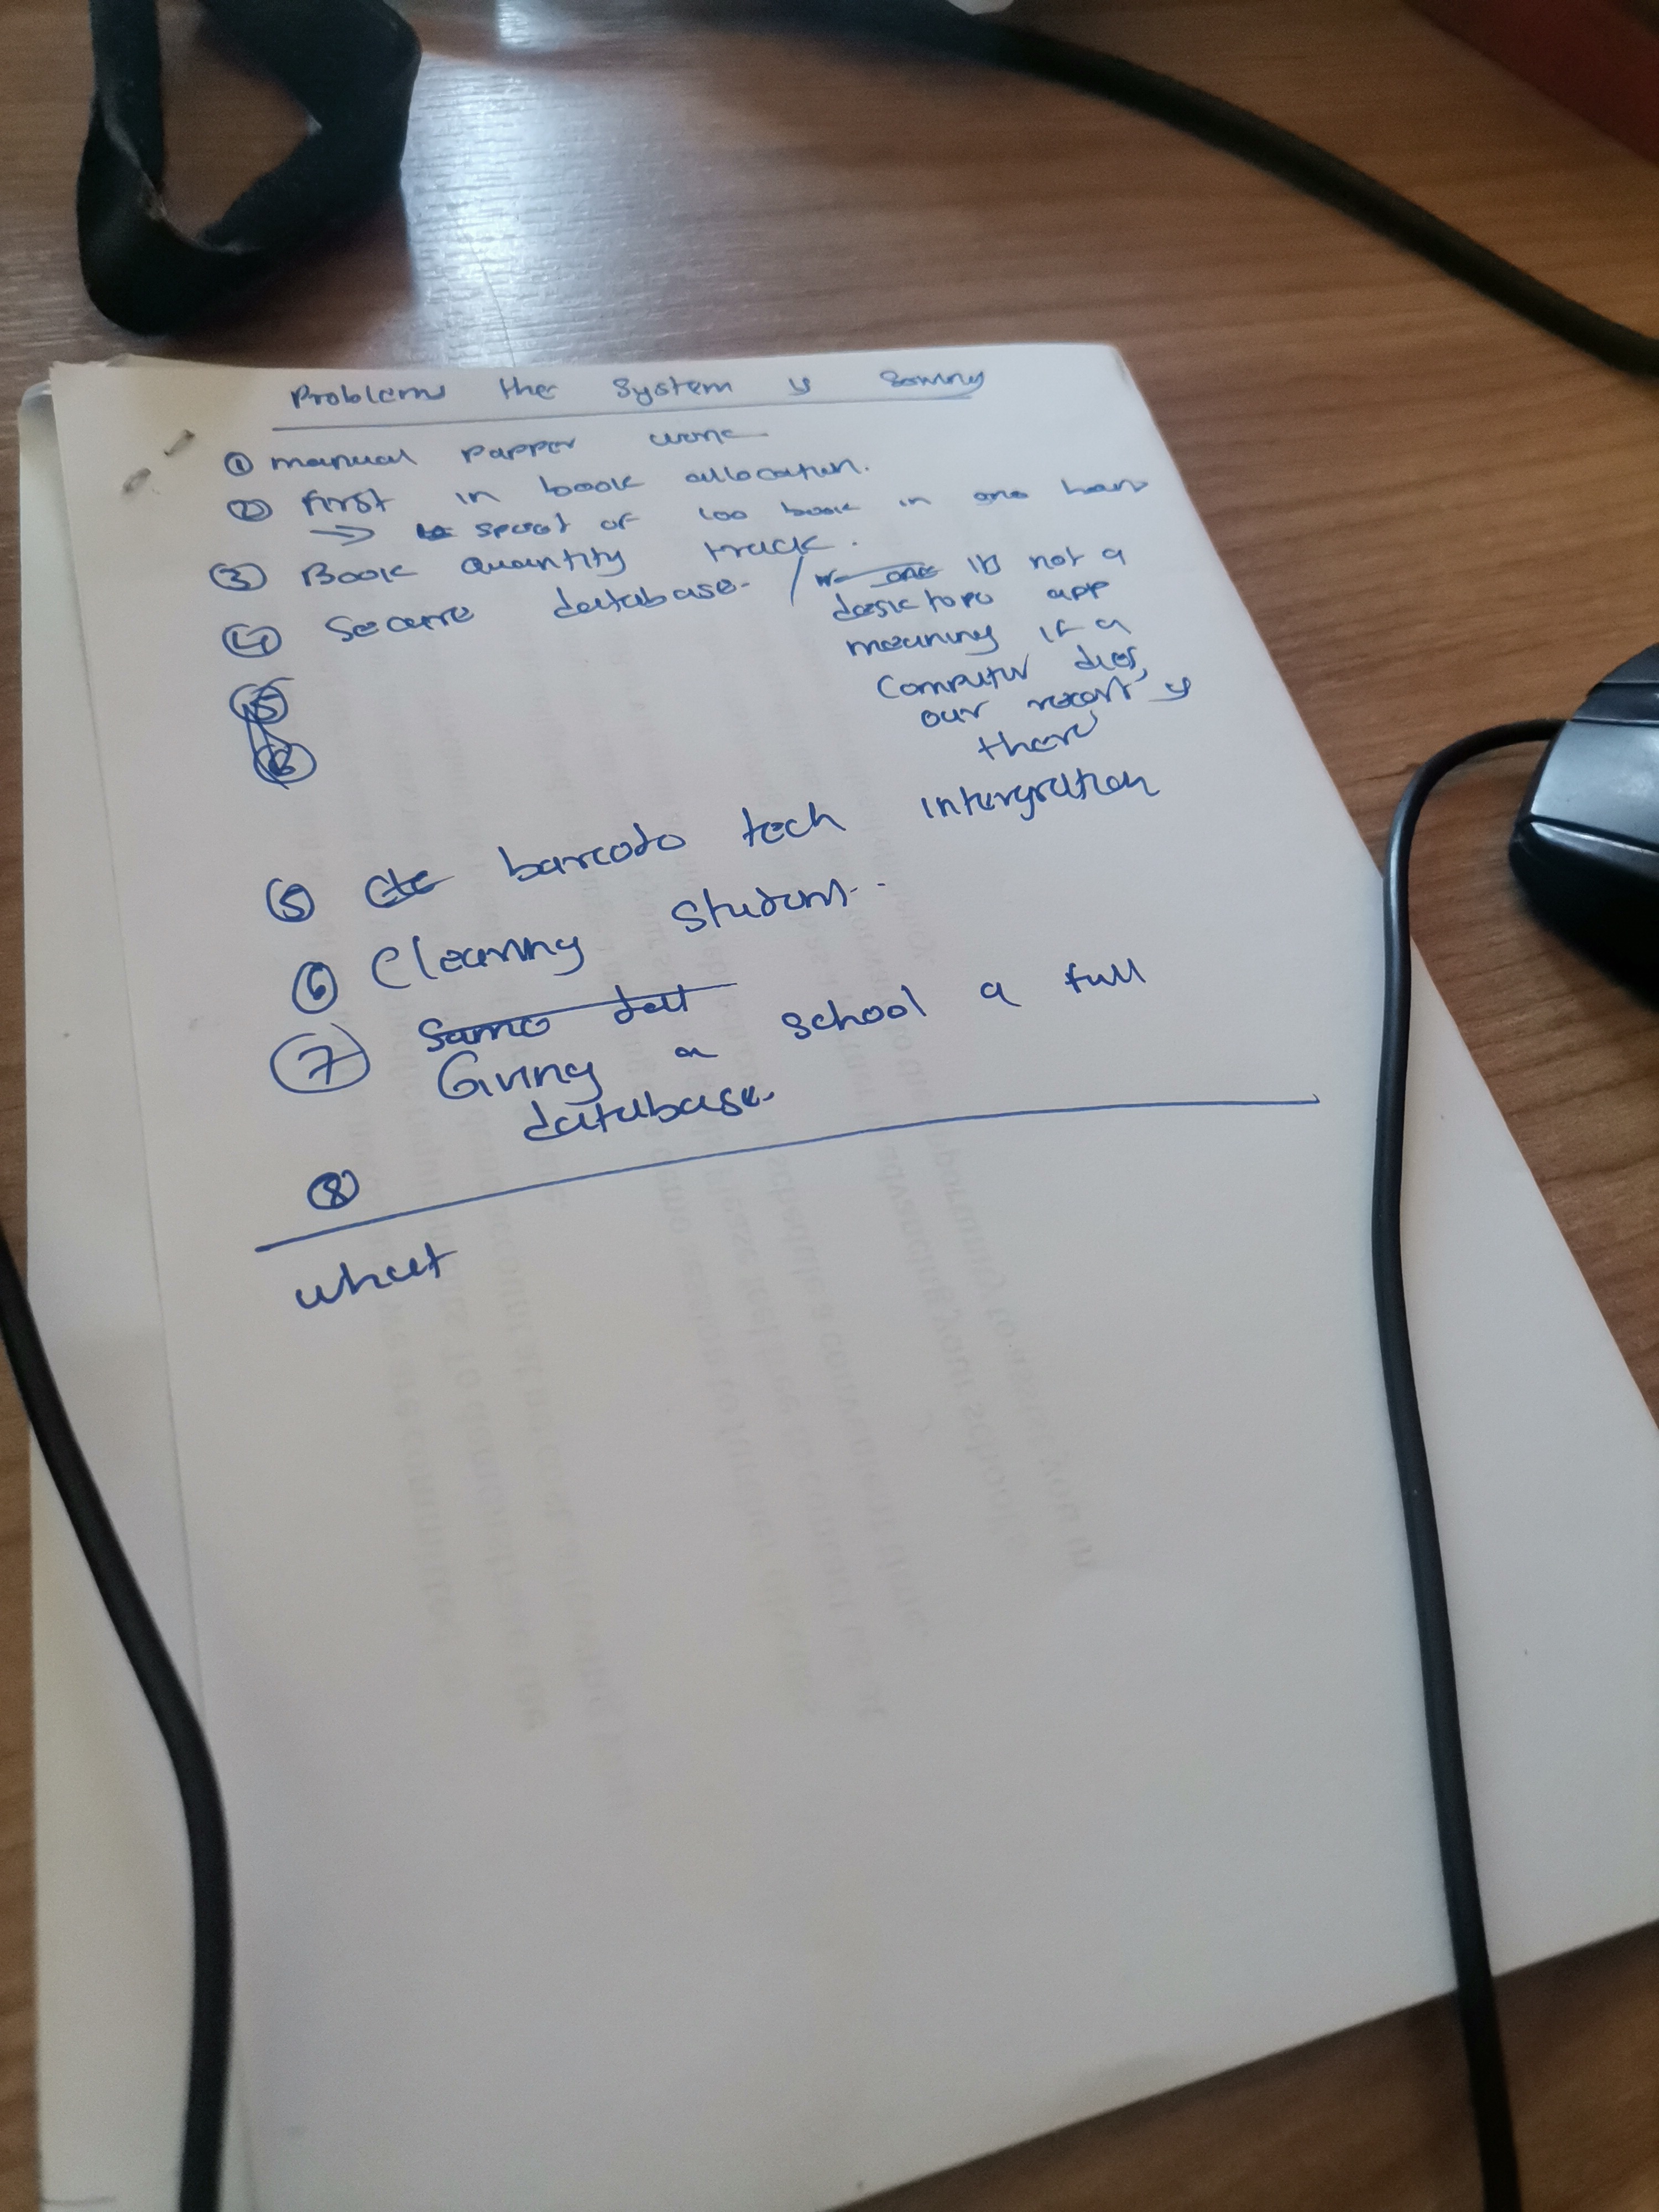 Problems the System is Solving
① manual papper work
② first in book allocation.
→ speed of 100 book in one hour
③ Book Quantity track.
④ Secure database. / its not a
desktop app
meaning if a
computer dies,
our record is
there
⑤ barcode tech intergration
⑥ Clearing student..
⑦ Same
Giving a school a full
database.
⑧
what